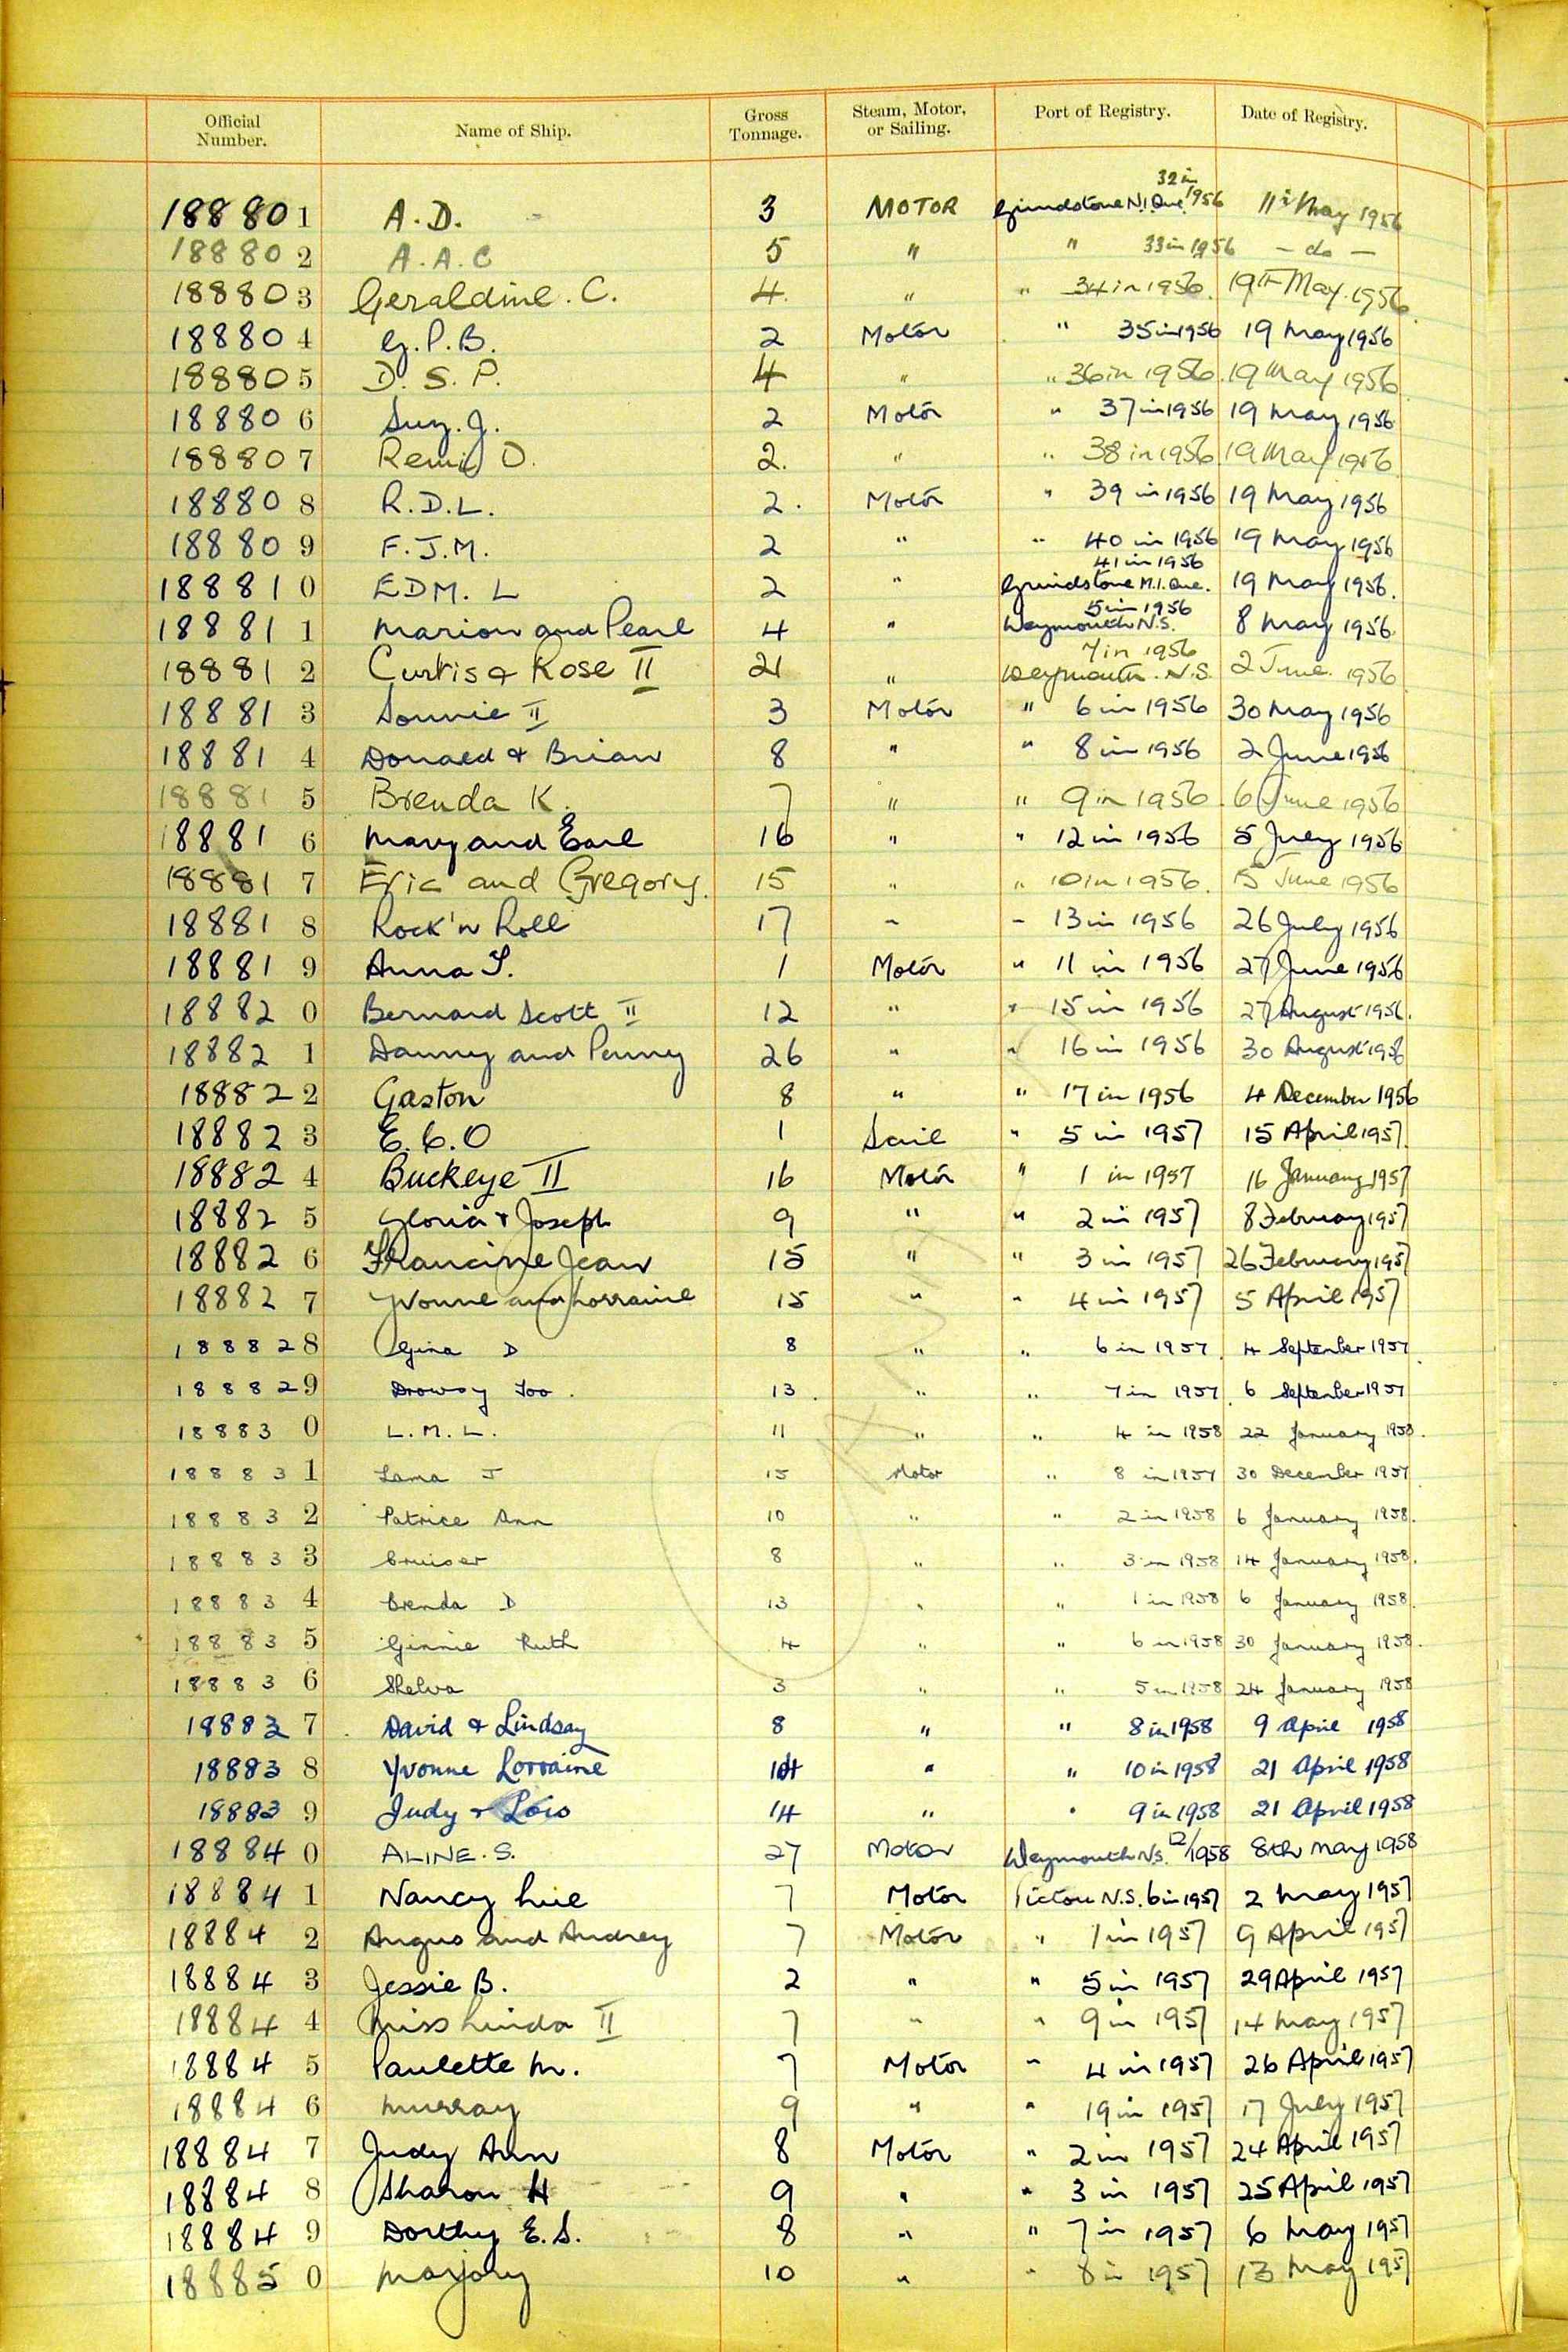 Official Number. Name of Ship. Gross Tonnage. Steam, Motor, or Sailing. Port of Registry. Date of Registry.
32 in
188801 A.D. 3 MOTOR Grindstone N.I. Que. 1956 11th May 1956
188802 A.A.C 5 " " 33 in 1956 — do —
188803 Geraldine. C. 4. " " 34 in 1956. 19th May. 1956
188804 G.P.B. 2 Motor " 35 in 1956 19 May 1956
188805 D.S.P. 4 " " 36 in 1956. 19 May 1956
188806 Suz. J. 2 Motor " 37 in 1956 19 May 1956
188807 Remi D. 2. " " 38 in 1956 19 May 1956
188808 R.D.L. 2. Motor " 39 in 1956 19 May 1956
188809 F.J.M. 2 " " 40 in 1956 19 May 1956
41 in 1956
188810 EDM. L 2 " Grindstone M.I. Que. 19 May 1956.
5 in 1956
188811 Marion and Pearl 4 " Weymouth N.S. 8 May 1956.
7 in 1956
188812 Curtis & Rose II 21 " Weymouth. N.S. 2 June 1956
188813 Sonnie II 3 Motor " 6 in 1956 30 May 1956
188814 Donald & Brian 8 " " 8 in 1956 2 June 1956
188815 Brenda K. 7 " " 9 in 1956. 6 June 1956
188816 Mary and Earl 16 " " 12 in 1956 5 July 1956
188817 Eric and Gregory. 15 " " 10 in 1956. 15 June 1956
188818 Rock'n Roll 17 " " 13 in 1956 26 July 1956
188819 Anna T. 1 Motor " 11 in 1956 27 June 1956
188820 Bernard Scott II 12 " " 15 in 1956 27 August 1956.
188821 Danny and Penny 26 " " 16 in 1956 30 August 1956
188822 Gaston 8 " " 17 in 1956 4 December 1956
188823 E.6.O 1 Sail " 5 in 1957 15 April 1957.
188824 Buckeye II 16 Motor " 1 in 1957 16 January 1957
188825 Gloria & Joseph 9 " " 2 in 1957 8 February 1957
188826 Francine Jean 15 " " 3 in 1957 26 February 1957
188827 Yvonne and Lorraine 15 " " 4 in 1957 5 April 1957
188828 Gina D 8 " " 6 in 1957. 4 September 1957
188829 Drowsy Too. 13. " " 7 in 1957. 6 September 1957
188830 L.M.L. 11 " " 4 in 1958 22 January 1958.
188831 Lama J 15 Motor " 8 in 1957 30 December 1957
188832 Patrice Ann 10 " " 2 in 1958 6 January 1958.
188833 Cruiser 8 " " 3 in 1958 14 January 1958.
188834 Brenda D 13 " " 1 in 1958 6 January 1958.
188835 Ginnie Ruth 4 " " 6 in 1958 30 January 1958.
188836 Shelva 3 " " 5 in 1958 24 January 1958
188837 David & Lindsay 8 " " 8 in 1958 9 April 1958
188838 Yvonne Lorraine 14 " " 10 in 1958 21 April 1958
188839 Judy & Lois 14 " " 9 in 1958 21 April 1958
188840 ALINE.S. 27 Motor Weymouth N.S. 12/1958 8th May 1958
188841 Nancy Lue 7 Motor Pictou N.S. 6 in 1957 2 May 1957
188842 Angus and Audrey 7 Motor " 1 in 1957 9 April 1957
188843 Jessie B. 2 " " 5 in 1957 29 April 1957
188844 Miss Linda II 7 " " 9 in 1957 14 May 1957
188845 Paulette M. 7 Motor " 4 in 1957 26 April 1957
188846 Murray 9 " " 19 in 1957 17 July 1957
188847 Judy Ann 8 Motor " 2 in 1957 24 April 1957
188848 Sharon H 9 " " 3 in 1957 25 April 1957
188849 Dorthy E.S. 8 " " 7 in 1957 6 May 1957
188850 Marjory 10 " " 8 in 1957 13 May 1957